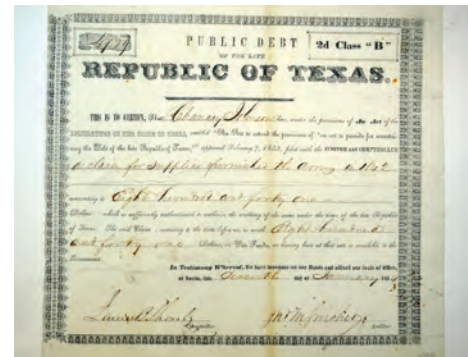 PUBLIC DEBT
OF THE LATE
2d Class "B"
REPUBLIC OF TEXAS.
THIS IS TO CERTIFY, That Johnson has, under the provisions of An Act of the
LEGISLATURE OF THE STATE OF TEXAS, entitled "An Act to extend the provisions of "an act to provide for ascertaining
the Debt of the late Republic of Texas," approved February 7, 1852, filed with the AUDITOR and COMPTROLLER
a claim for supplies furnished the army in 1842
amounting to Eight hundred and forty one
Dollars; which is sufficiently authenticated to the auditing of the same under the laws of the late Republic
of Texas. The said Claim, according to the data before us, is worth Eight hundred
and forty one Dollars, in Par Funds, as having been at that rate so available to the
Government.
In Testimony Whereof, We have hereunto set our Hands and affixed our Seals of Office,
at Austin, this day of January
James B Shaw
Comptroller
Auditor